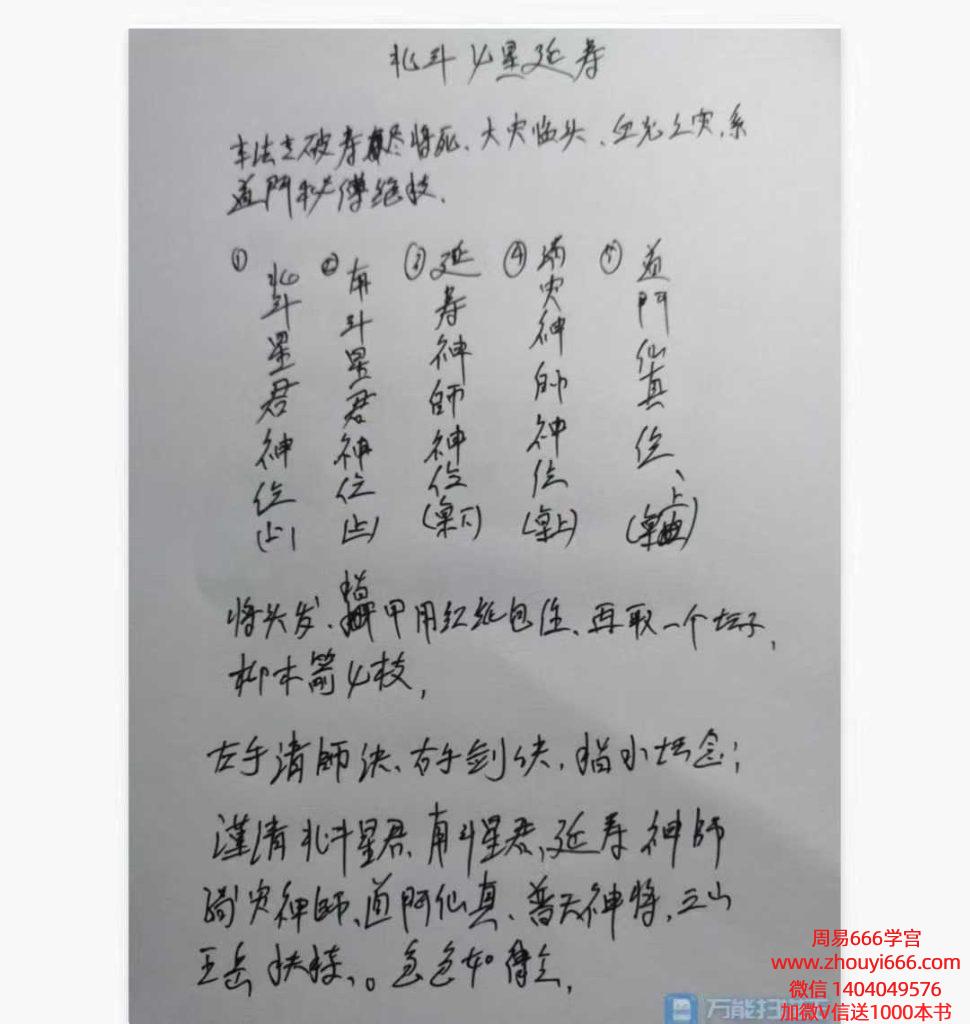 北斗七星延寿
本法主破寿尽将死、大灾临头、血光之灾,系
道門秘傳绝技.
① 北斗星君神位(上)
② 南斗星君神位(上)
③ 延寿神師神位(桌下)
④ 消灾神師神位(桌上)
⑤ 道門仙真位、(桌上)
将头发、指甲用红纸包住、再取一个坛子,
柳木箭七枝,
左手請師决、右手剑决,指小坛念;
謹请北斗星君、南斗星君、延寿神師
消灾神師、道門仙真、普天神将,三山
五岳扶持、。急急如律令,
万能扫
周易666学宫
www.zhouyi666.com
微信 1404049576
加微V信送1000本书